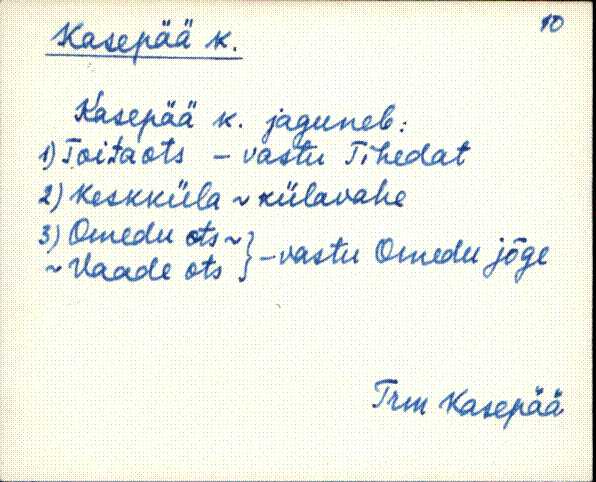 10
Kasepää k.
Kasepää k. jaguneb:
1) Toitaots – vastu Tihedat
2) Keskküla ~ külavahe
3) Omedu ots ~
~ Vaade ots } – vastu Omedu jõge
Trm Kasepää